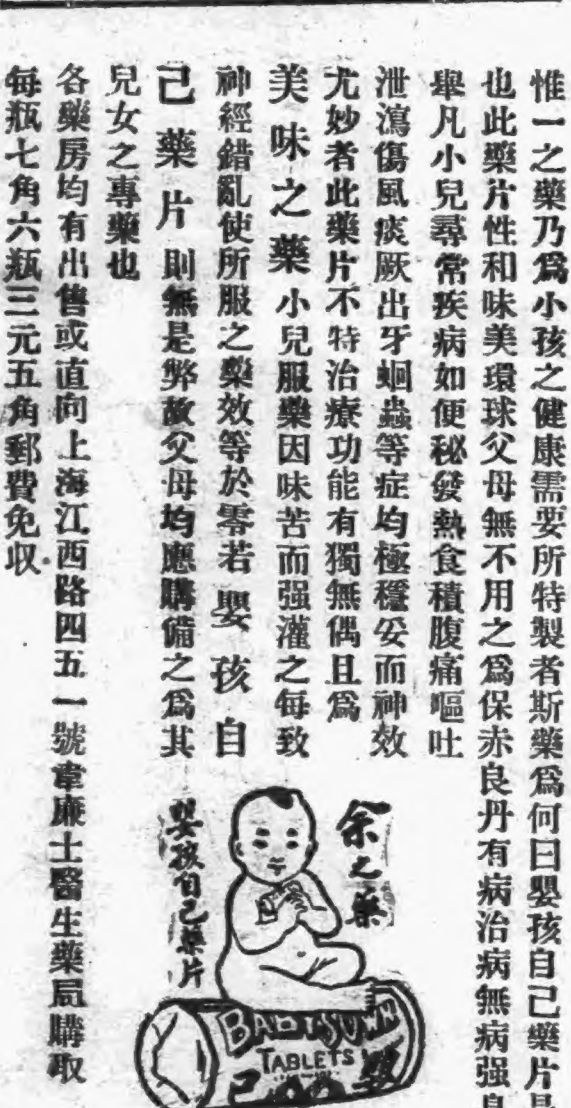 惟一之藥乃爲小孩之健康需要所特製者斯藥爲何曰嬰孩自己藥片是
也此藥片性和味美環球父母無不用之爲保赤良丹有病治病無病强身
舉凡小兒尋常疾病如便秘發熱食積腹痛嘔吐
泄瀉傷風痰厥出牙蛔蟲等症均極穩妥而神效
尤妙者此藥片不特治療功能有獨無偶且爲
美味之藥小兒服藥因味苦而强灌之每致
神經錯亂使所服之藥效等於零若嬰孩自
己藥片則無是弊故父母均應購備之爲其
兒女之專藥也
各藥房均有出售或直向上海江西路四五一號韋廉士醫生藥局購取
每瓶七角六瓶三元五角郵費免収
余之藥
嬰孩自己藥片
BABY'S OWN
TABLETS